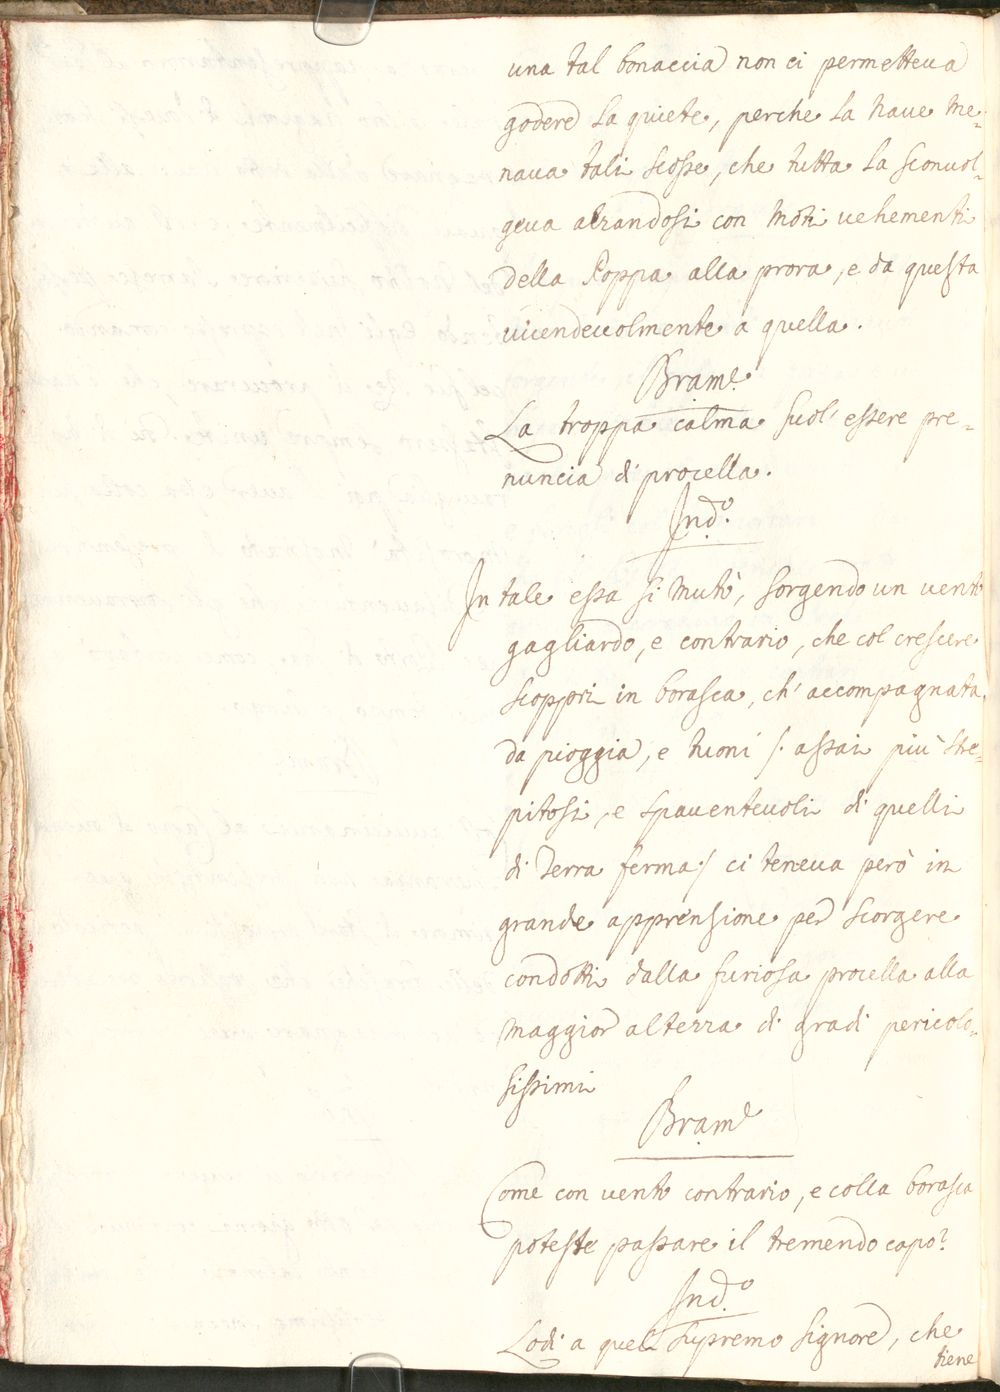 una tal bonaccia non ci permetteua
godere la quiete, perche la Naue me-
naua tali scosse, che tutta la sconuol-
geua alzandosi con moti uehementi
della Poppa alla prora, e da questa
uicendeuolmente a quella.
Bram.e
La troppa calma suol' essere pre-
nuncia di procella.
Ind.o
In tale essa si mutò, sorgendo un uento
gagliardo, e contrario, che col crescere
scoppri in borasca, ch' accompagnata
da pioggia, e tuoni /: assai più stre-
pitosi, e spauenteuoli di quelli
di Terra ferma :/ ci teneua però in
grande apprensione per scorgere
condotti dalla furiosa procella alla
maggior altezza di gradi pericolo-
sissimi
Bram.e
Come con uento contrario, e colla borasca
poteste passare il tremendo capo?
Ind.o
Lodi a quel supremo Signore, che
tiene